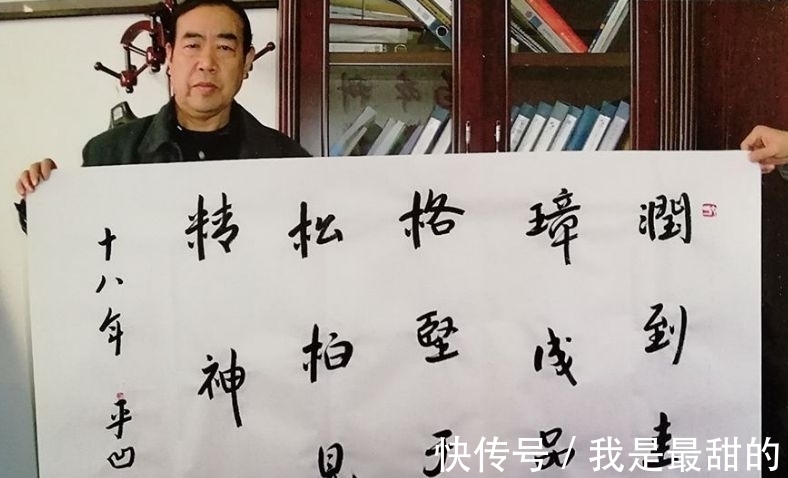 潤到圭
璋成品
格堅于
松柏見
精神
十八年 平凹
快传号 / 我是最甜的